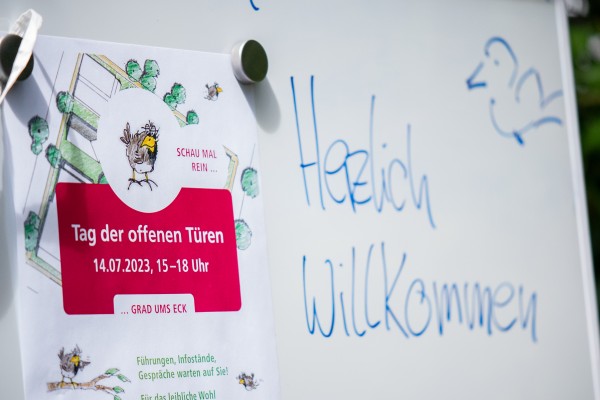 SCHAU MAL
REIN ...
Tag der offenen Türen
14.07.2023, 15–18 Uhr
... GRAD UMS ECK
Führungen, Infostände,
Gespräche warten auf Sie!
Für das leibliche Wohl
Herzlich
Willkommen